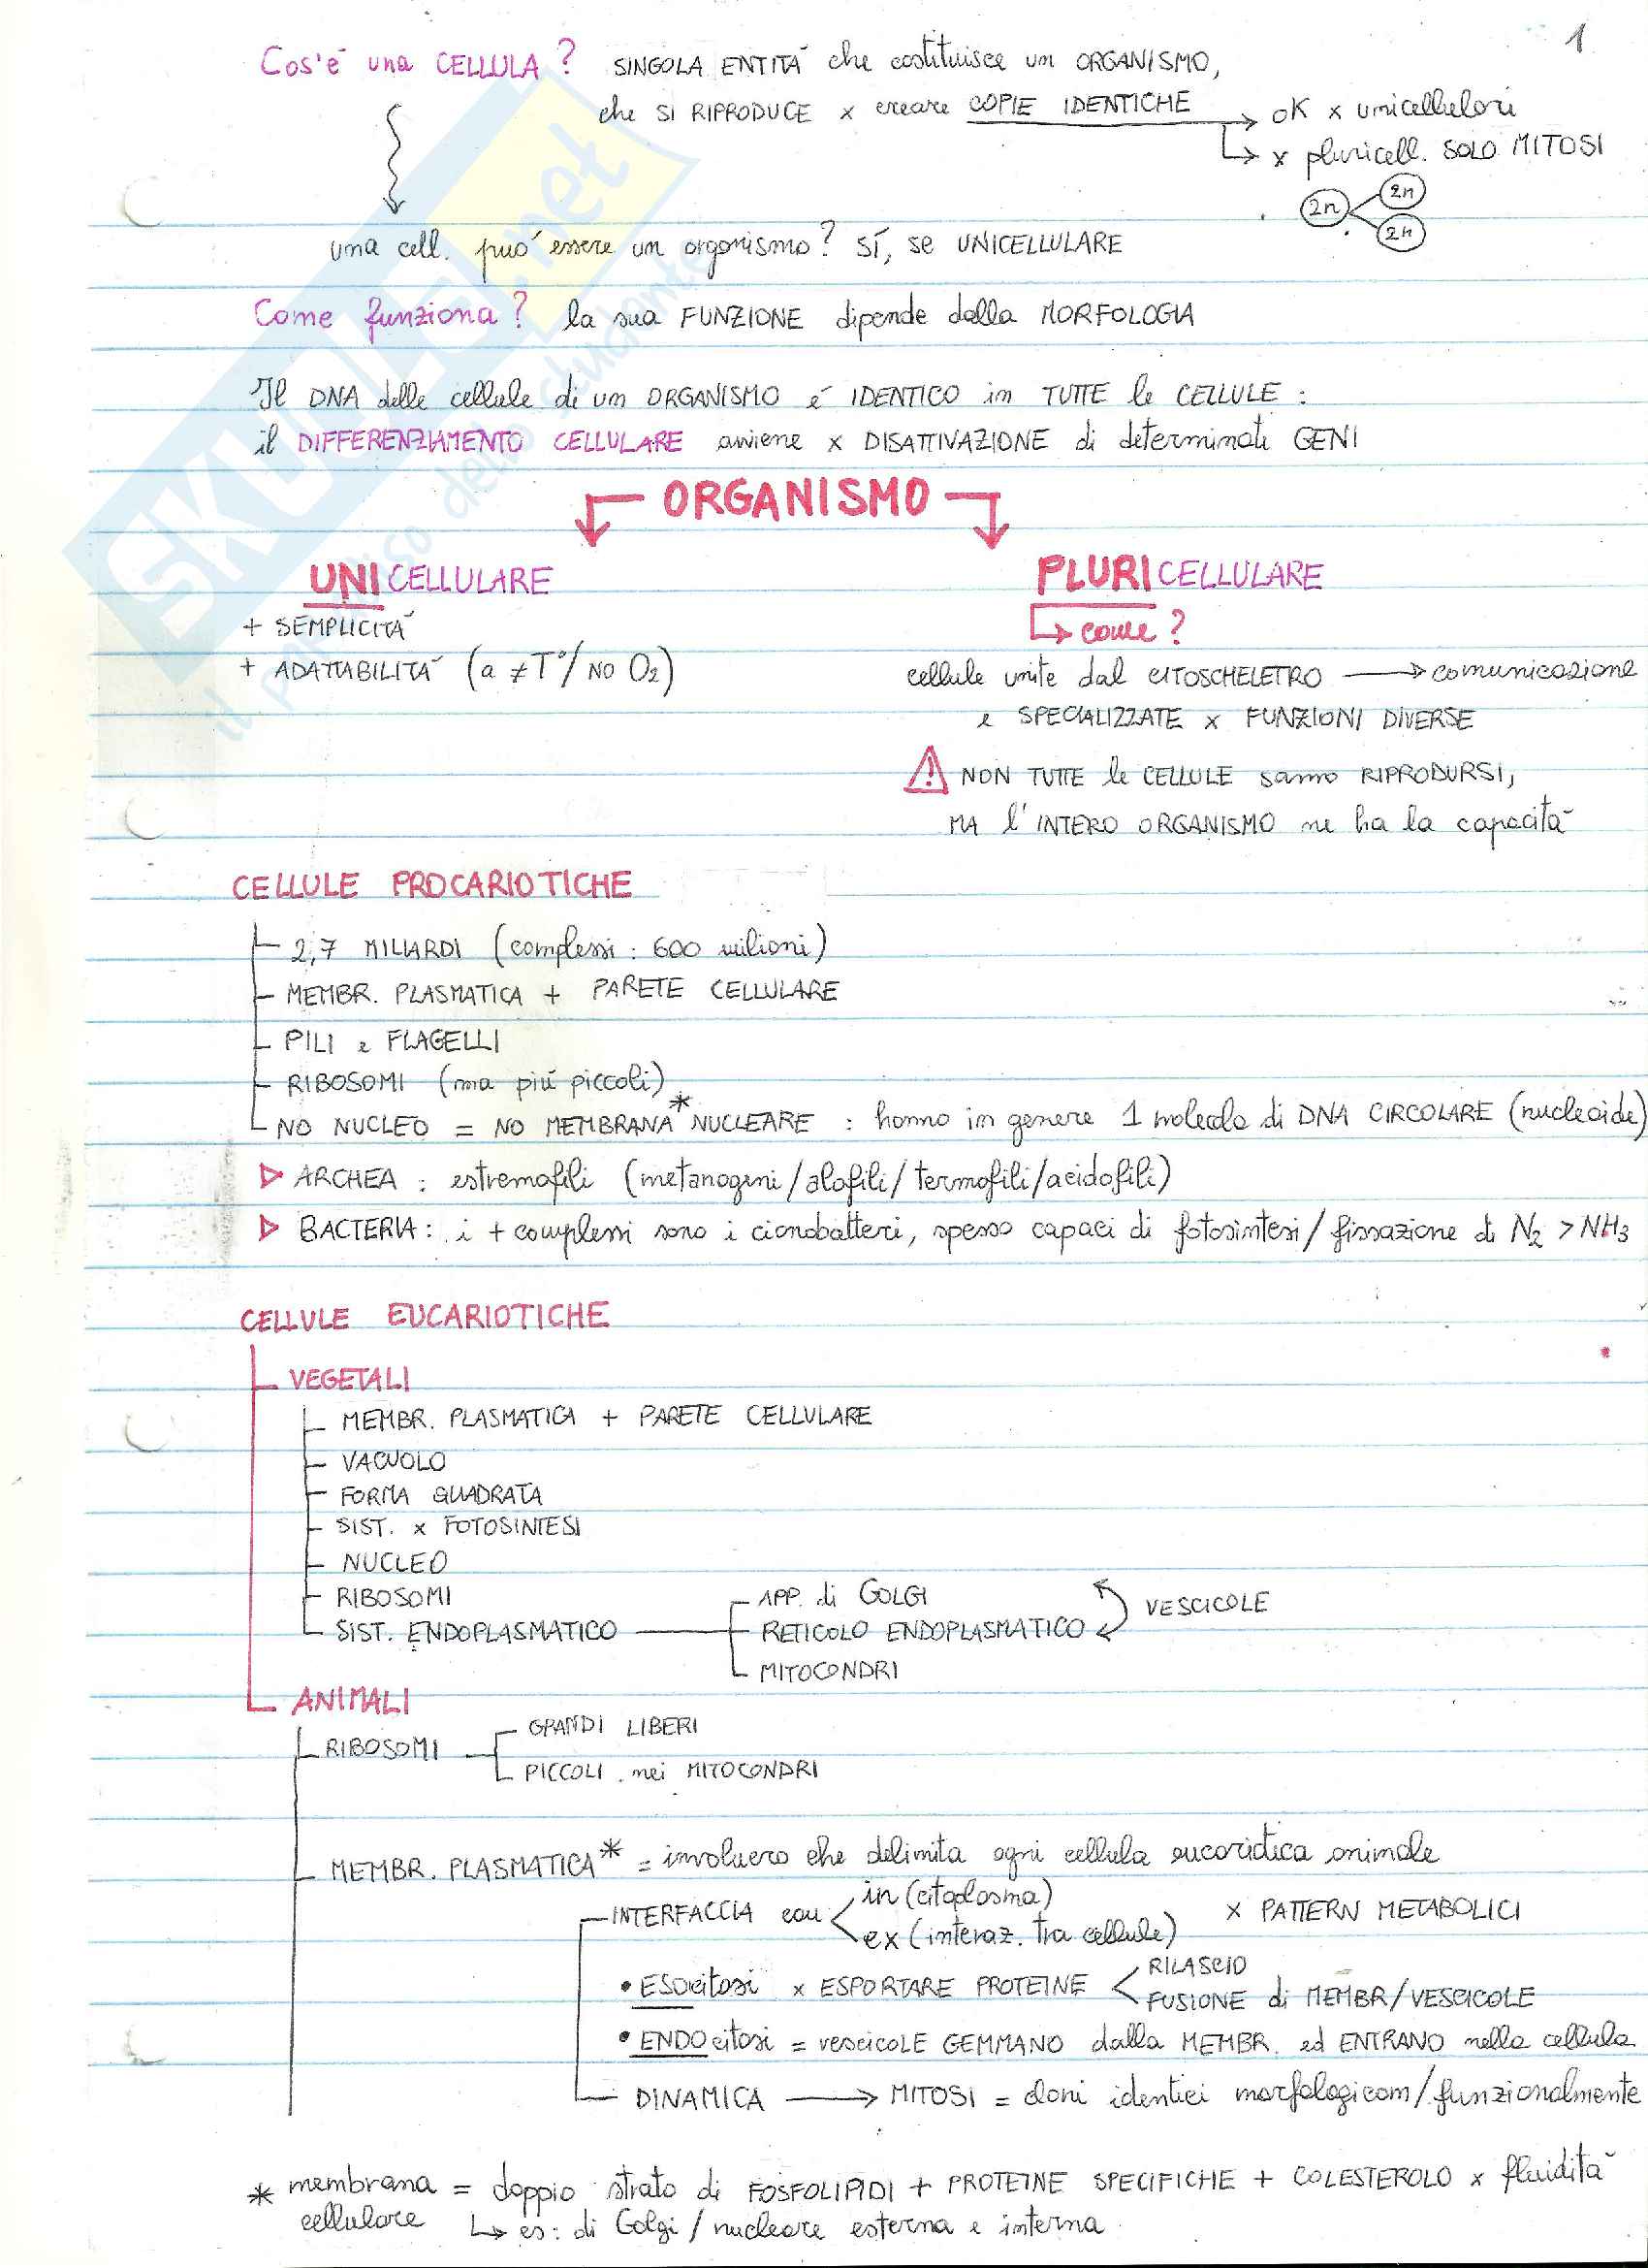 1
Cos'è una CELLULA? SINGOLA ENTITÀ che costituisce un ORGANISMO,
che SI RIPRODUCE x creare COPIE IDENTICHE → OK x unicellulari
↳ x pluricell. SOLO MITOSI
2n 2n 2n
una cell. può essere un organismo? SÍ, se UNICELLULARE
Come funziona? la sua FUNZIONE dipende dalla MORFOLOGIA
Il DNA delle cellule di un ORGANISMO é IDENTICO in TUTTE le CELLULE :
il DIFFERENZIAMENTO CELLULARE avviene x DISATTIVAZIONE di determinati GENI
ORGANISMO
UNICELLULARE
+ SEMPLICITÀ
+ ADATTABILITÀ (a ≠ T°/ NO O2)
PLURICELLULARE
↳ come?
cellule unite dal CITOSCHELETRO → comunicazione
e SPECIALIZZATE x FUNZIONI DIVERSE
⚠ NON TUTTE le CELLULE sanno RIPRODURSI,
MA l'INTERO ORGANISMO ne ha la capacità
CELLULE PROCARIOTICHE
2,7 MILIARDI (complessi: 600 milioni)
MEMBR. PLASMATICA + PARETE CELLULARE
PILI e FLAGELLI
RIBOSOMI (ma piú piccoli)
NO NUCLEO = NO MEMBRANA* NUCLEARE : hanno in genere 1 molecola di DNA CIRCOLARE (nucleoide)
▷ ARCHEA : estremofili (metanogeni/alofili/termofili/acidofili)
▷ BACTERIA: i + complessi sono i cianobatteri, spesso capaci di fotosintesi/fissazione di N2 > NH3
CELLULE EUCARIOTICHE
VEGETALI
MEMBR. PLASMATICA + PARETE CELLULARE
VACUOLO
FORMA QUADRATA
SIST. x FOTOSINTESI
NUCLEO
RIBOSOMI
SIST. ENDOPLASMATICO
APP. di GOLGI
RETICOLO ENDOPLASMATICO
VESCICOLE
MITOCONDRI
ANIMALI
RIBOSOMI
GRANDI LIBERI
PICCOLI nei MITOCONDRI
MEMBR. PLASMATICA* = involucro che delimita ogni cellula eucariotica animale
INTERFACCIA con < in (citoplasma) x PATTERN METABOLICI
ex (interaz. tra cellule)
• ESOcitosi x ESPORTARE PROTEINE < RILASCIO
FUSIONE di MEMBR/VESCICOLE
• ENDOcitosi = vescicOLE GEMMANO dalla MEMBR. ed ENTRANO nella cellula
DINAMICA → MITOSI = cloni identici morfologicam/funzionalmente
* membrana cellulare = doppio strato di FOSFOLIPIDI + PROTEINE SPECIFICHE + COLESTEROLO x fluidità
↳ es: di Golgi / nucleare esterna e interna
SKUOLA.net
il paradiso dello studente